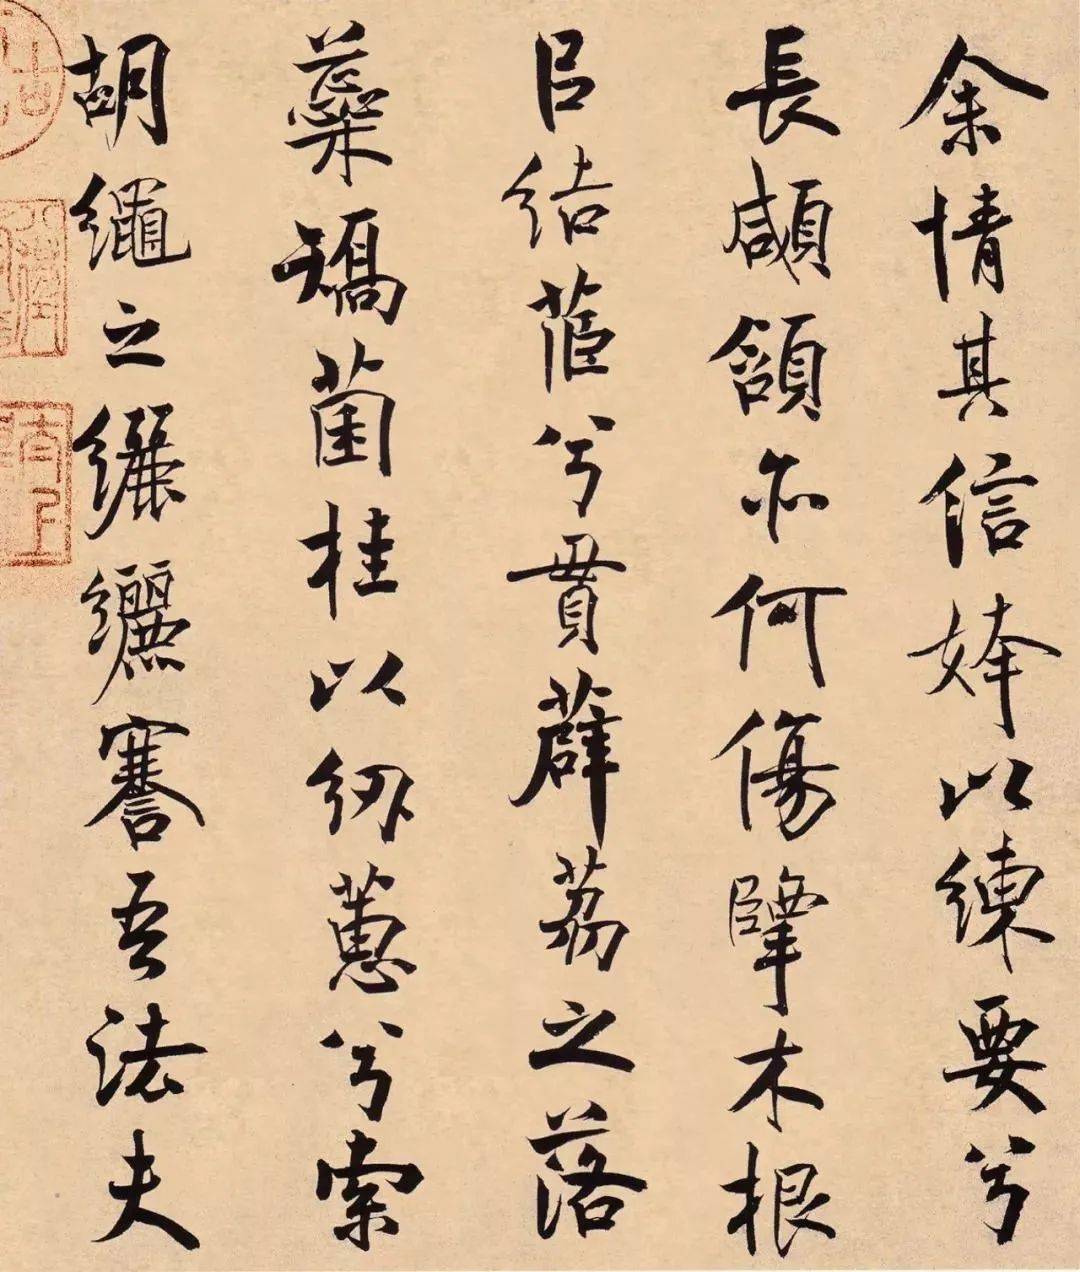 余情其信姱以練要兮
長顑頷亦何傷擥木根
㠯結茝兮貫薜荔之落
蘂矯菌桂以紉蕙兮索
胡繩之纚纚謇吾法夫